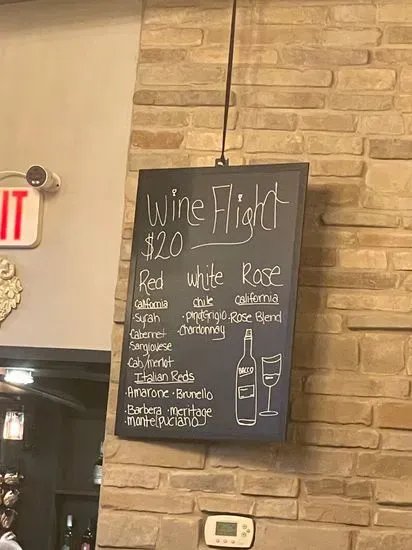 IT
Wine Flight
$20
Red White Rose
California Chile California
• Syrah • Pinot Grigio • Rose Blend
• Cabernet • Chardonnay
Sangiovese
Cab/merlot
Italian Reds
• Amarone • Brunello
• Barbera • meritage
montelpuciano
BACCO